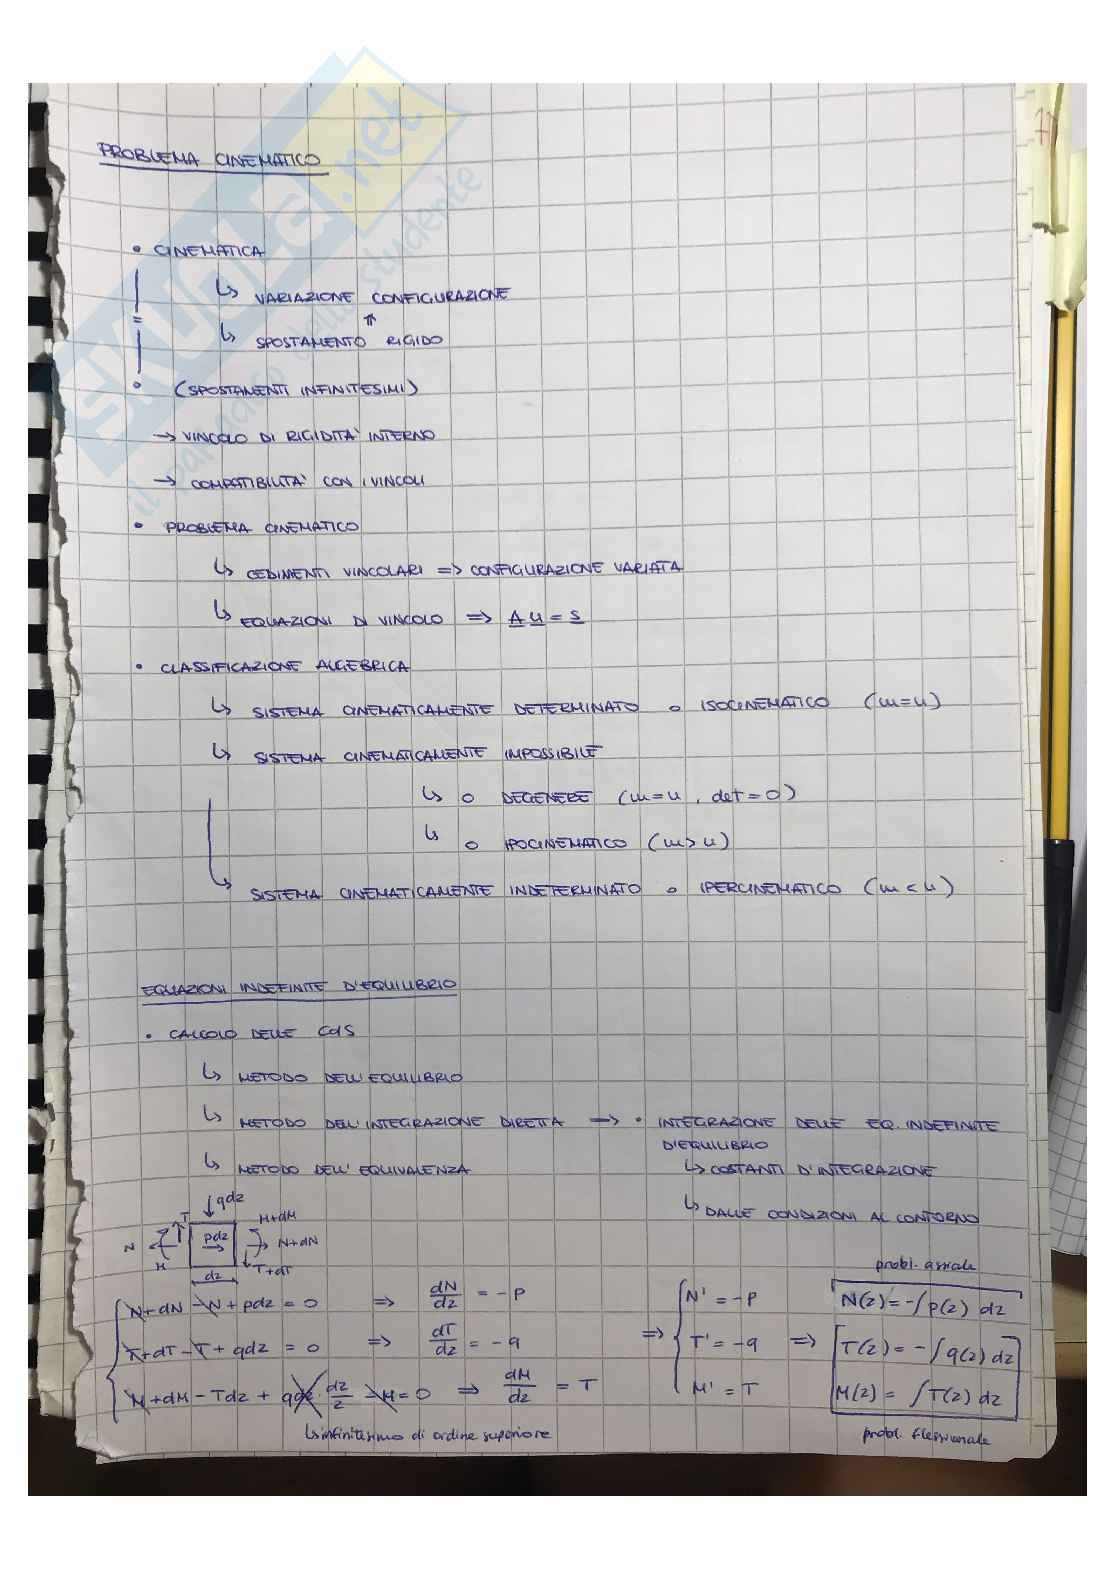 PROBLEMA CINEMATICO
• CINEMATICA
↳ VARIAZIONE CONFIGURAZIONE
=
↳ SPOSTAMENTO RIGIDO
• (SPOSTAMENTI INFINITESIMI)
→ VINCOLO DI RIGIDITA' INTERNO
→ COMPATIBILITA' CON I VINCOLI
• PROBLEMA CINEMATICO
↳ CEDIMENTI VINCOLARI => CONFIGURAZIONE VARIATA
↳ EQUAZIONI DI VINCOLO => A u = s
• CLASSIFICAZIONE ALGEBRICA
↳ SISTEMA CINEMATICAMENTE DETERMINATO o ISOCINEMATICO (m=n)
↳ SISTEMA CINEMATICAMENTE IMPOSSIBILE
↳ o DEGENERE (m=n, det=0)
↳ o IPOCINEMATICO (m>n)
↳ SISTEMA CINEMATICAMENTE INDETERMINATO o IPERCINEMATICO (m<n)
EQUAZIONI INDEFINITE D'EQUILIBRIO
• CALCOLO DELLE CdS
↳ METODO DELL'EQUILIBRIO
↳ METODO DELL'INTEGRAZIONE DIRETTA → • INTEGRAZIONE DELLE EQ. INDEFINITE
D'EQUILIBRIO
↳ METODO DELL'EQUIVALENZA ↳ COSTANTI D'INTEGRAZIONE
↳ DALLE CONDIZIONI AL CONTORNO
qdz
T M+dM
N pdz N+dN
M T+dT
dz
probl. assiale
N+dN-N+pdz=0 => dN/dz = -p => N'=-p N(z)=-∫p(z) dz
T+dT-T+qdz=0 => dT/dz = -q T'=-q => T(z)=-∫q(z) dz
M+dM-Tdz+qdz·dz/2-M=0 => dM/dz = T M'=T M(z)=∫T(z) dz
↳ infinitesimo di ordine superiore
probl. flessionale
SKUOLA.net
il paradiso dello studente